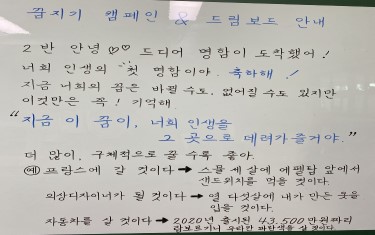 꿈지기 캠페인 & 드림보드 안내
2반 안녕♡♡ 드디어 명함이 도착했어!
너희 인생의 첫 명함이야. 축하해!
지금 너희의 꿈은 바뀔 수도, 없어질 수도 있지만
이것만은 꼭! 기억해
"지금 이 꿈이, 너희 인생을
그 곳으로 데려가줄거야."
더 많이, 구체적으로 꿀 수록 좋아.
예 프랑스에 갈 것이다 → 스물 세 살에 에펠탑 앞에서
샌드위치를 먹을 것이다.
의상디자이너가 될 것이다 → 열 다섯살에 내가 만든 옷을
입을 것이다.
자동차를 살 것이다 → 2020년 출시된 43,500만원짜리
람보르기니 우라칸 파란색을 살 것이다.